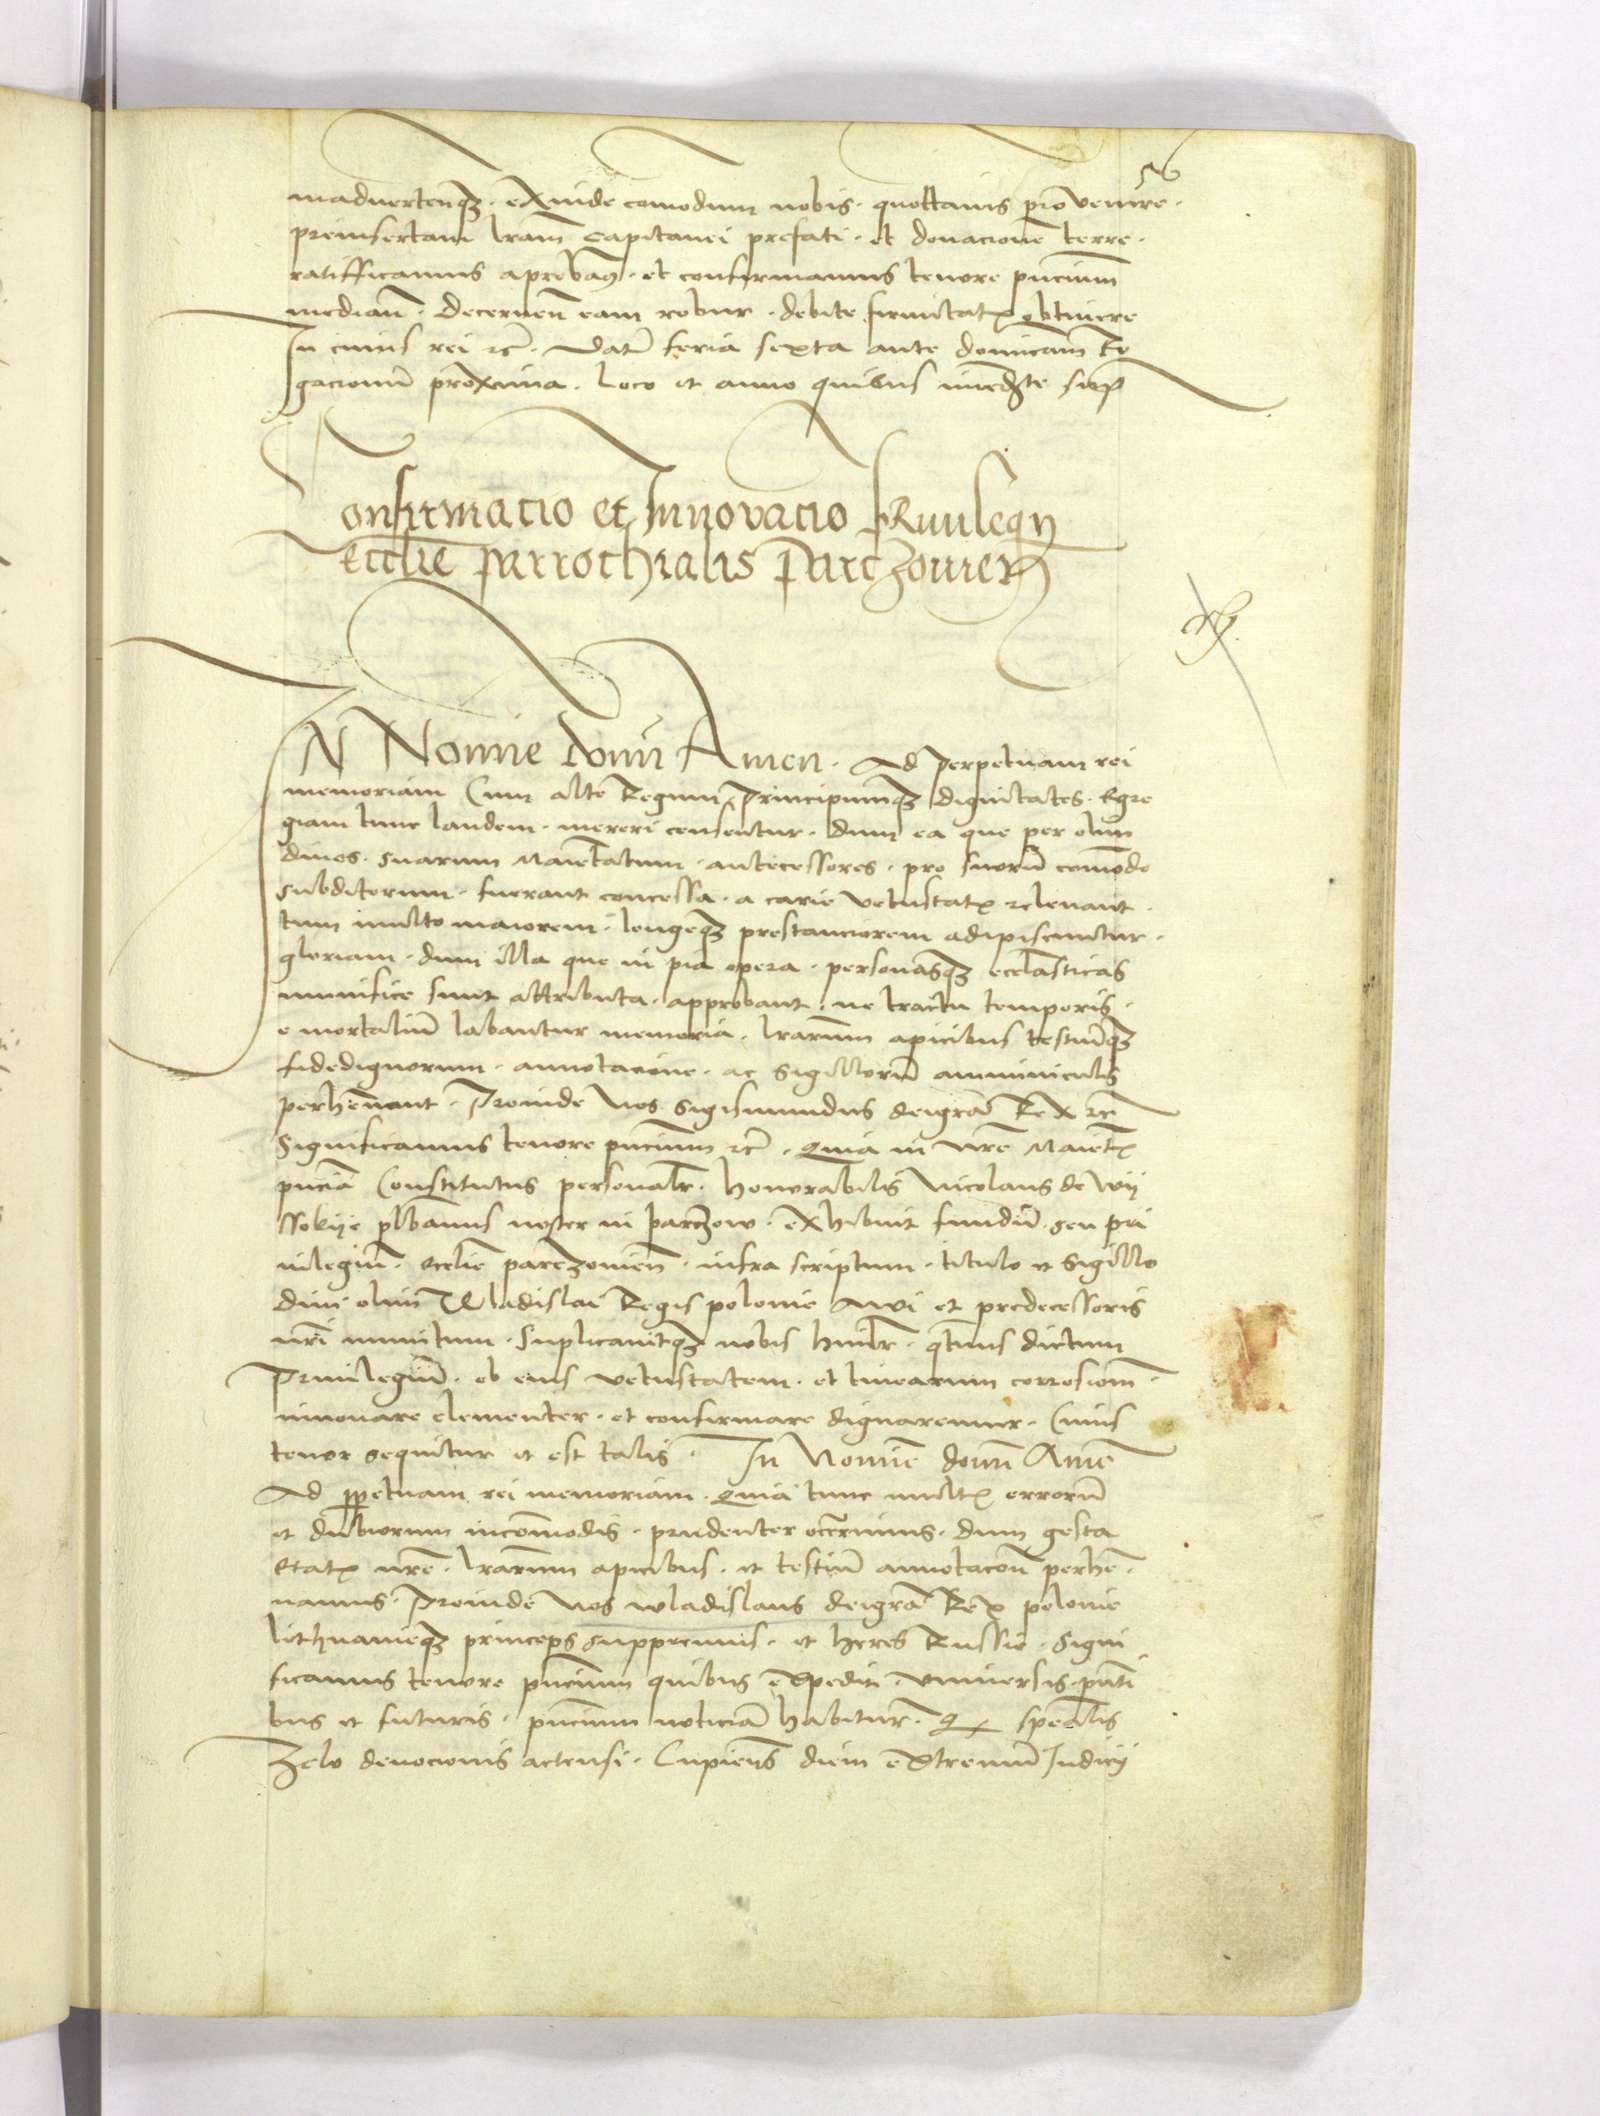 56
madvertenq3. exinde comodum nobis. quottanis provenire.
preinsertam lram Capitanei prefati. et donacione terre.
ratifficamus aprobaq3. et confirmamus tenore pncium
median̄. Decernen̄ eam robur. debite firmitatꝭ obtinere
In cuius rei rc̄. Datū feria sexta ante dominicam Ro
gacionū proxima. Loco et anno quibus immedte supͣ
Confirmacio et Innovacio Privilegij
Ecclie parrochialis Parczovien̄
IN Nomine domī Amen. Ad perpetuam rei
memoriam Cum alte Regum Principumq3 dignitates. Egre
giam tunc laudem. mereri censentur. dum ea que per olim
divos. suarum Maiestatum. antecessores. pro suorū comodo
subditorum. fuerant concessa. a carie vetustatꝭ relevant.
tum multo maiorem. longeq3 prestanciorem adipiscuntur.
gloriam. dum illa que in pia opera. personasq3 ecclasticas
munifice sunt attributa. approbant. ne tractu temporis.
e mortaliū labantur memoria. lrarum apicibus testiumq3
fidedignorum. annotacione. ac sigillorū amminiculis
perhennant. Proinde Nos Sigismundus deigrā Rex rc̄
Significamus tenore pncium rc̄. Quia in nrē Maiestꝭ
pncia Constitutus personalr. honorabilis Nicolaus de Wy
ssokye plbanus noster in parczow. exhibuit fundū. seu pri
vilegiū. ecclie parczovien̄. infra scriptum. titulo et sigillo
divi olim Wladislai Regis polonie Avi et predecessoris
nrī munitum. Suplicavitq3 nobis humlr. qtenus dictum
Privilegiū. ob eius vetustatem. et tinearum corrosionē.
innovare clementer. et confirmare dignaremur. Cuius
tenor sequitur et est talis. In Nomine domī Amē
Ad ppetuam rei memoriam. Quia tunc multꝭ errorū
et dubiorum incomodis. prudenter occurrimus. dum gesta
etatꝭ nrē. lrarum apicibus. et testiū annotacon̄ perhē.
namus. Proinde Nos wladislaus deigrā Rex polonie
lithuanieq3 princeps suppremus. et heres Russie. Signi
ficamus tenore pncium quibus expedit. Universis pnti
bus et futuris. pncium noticiā habitur̄. Q spealis
Zelo devocionis accensi. Cupiens diem extremū Iudicij